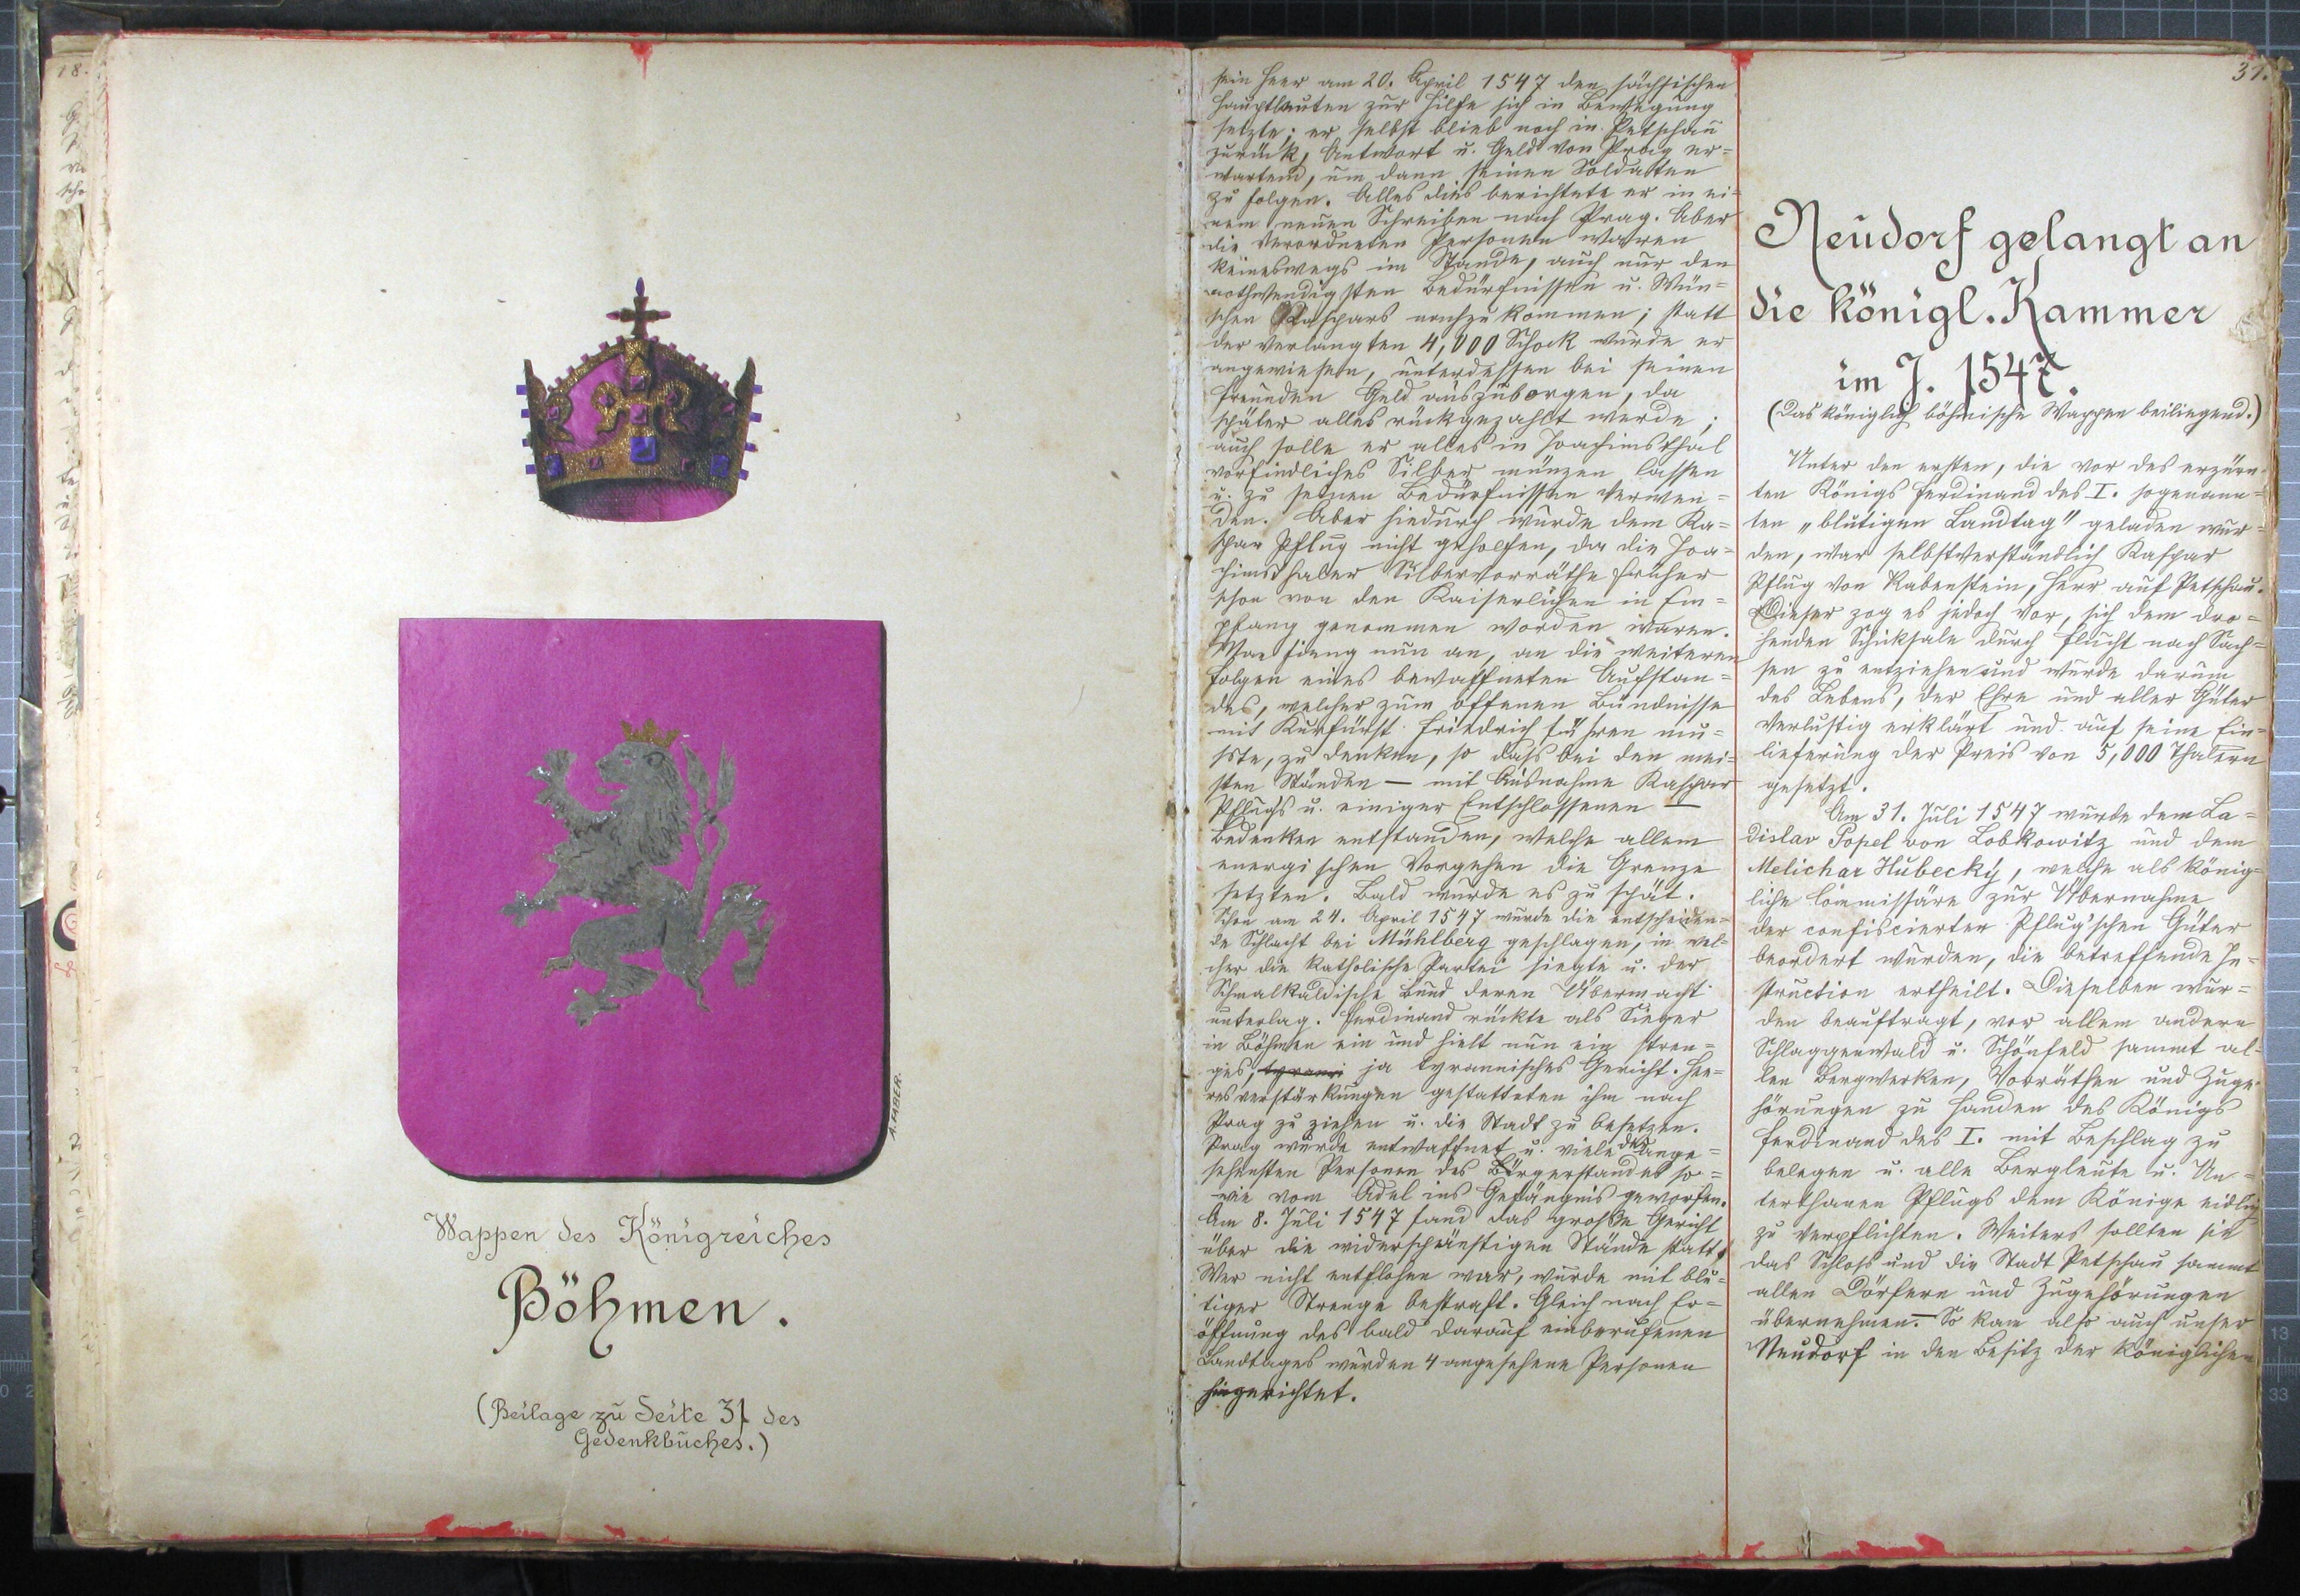 Wappen des Königreiches
Böhmen.
(Beilage zu Seite 31 des
Gedenkbuches.)
A. FABER.
sein Heer am 20. April 1547 den sächsischen
Hauptleuten zur Hilfe sich in Bewegung
setzte; er selbst blieb noch in Petschau
zurück, Antwort u. Geld von Prag er=
wartend, um dann seinen Soldaten
zu folgen. Alles dies berichtete er in ei=
nem neuen Schreiben nach Prag. Aber
die verordneten Personen waren
keineswegs im Stande, auch nur den
nothwendigsten Bedürfnissen u. Wün=
schen Kaspars nachzukommen; statt
der verlangten 4,000 Schock wurde er
angewiesen, unterdessen bei seinen
Freunden Geld auszuborgen, da
später alles rückgezahlt werde;
auch solle er alles in Joachimsthal
vorfindliches Silber münzen lassen
u. zu seinen Bedürfnissen verwen=
den. Aber hiedurch wurde dem Ka=
spar Pflug nicht geholfen, da die Joa=
chimsthaler Silbervorräthe früher
schon von den Kaiserlichen in Em=
pfang genommen worden waren.
Man fieng nun an, an die weiteren
Folgen eines bewaffneten Aufstan=
des, welcher zum offenen Bündnisse
mit Kurfürst Friedrich führen mu=
sste, zu denken, so dass bei den mei=
sten Ständen — mit Ausnahme Kaspar
Pflugs u. einiger Entschlossenen —
Bedenken entstanden, welche allem
energischen Vorgehen die Grenze
setzten. Bald wurde es zu spät.
Schon am 24. April 1547 wurde die entscheiden=
de Schlacht bei Mühlberg geschlagen, in wel=
cher die katholische Partei siegte u. der
Schmalkaldische Bund deren Übermacht
unterlag. Ferdinand rückte als Sieger
in Böhmen ein und hielt nun ein stren=
ges, tyranni ja tyrannisches Gericht. Hee=
resverstärkungen gestatteten ihm nach
Prag zu ziehen u. die Stadt zu besetzen.
Prag wurde entwaffnet u. viele der ange=
sehensten Personen des Bürgerstandes so=
wie vom Adel ins Gefängnis geworfen.
Am 8. Juli 1547 fand das große Gericht
über die widerspänstigen Stände statt.
Wer nicht entflohen war, wurde mit blu=
tiger Strenge bestraft. Gleich nach Er=
öffnung des bald darauf einberufenen
Landtages wurden 4 angesehene Personen
hingerichtet.
31.
Neudorf gelangt an
die königl. Kammer
im J. 1547.
(Das königlich böhmische Wappen beiliegend.)
Unter den ersten, die vor des erzürn=
ten Königs Ferdinand des I. sogenann=
ten „blutigen Landtag" geladen wur=
den, war selbstverständlich Kaspar
Pflug von Rabenstein, Herr auf Petschau.
Dieser zog es jedoch vor, sich dem dro=
henden Schicksale durch Flucht nach Sach=
sen zu entziehen und wurde darum
des Lebens, der Ehre und aller Güter
verlustig erklärt und auf seine Ein=
lieferung der Preis von 5,000 Thalern
gesetzt.
Am 31. Juli 1547 wurde dem La=
dislav Popel von Lobkowitz und dem
Melichar Hubecký, welche als könig=
liche Commissäre zur Übernahme
der confiscierten Pflug'schen Güter
beordert wurden, die betreffende In=
struction ertheilt. Dieselben wur=
den beauftragt, vor allem andern
Schlaggenwald u. Schönfeld sammt al=
len Bergwerken, Vorräthen und Zuge=
hörungen zu Handen des Königs
Ferdinand des I. mit Beschlag zu
belegen u. alle Bergleute u. Un=
terthanen Pflugs dem Könige eidlich
zu verpflichten. Weiters sollten sie
das Schloss und die Stadt Petschau sammt
allen Dörfern und Zugehörungen
übernehmen. — So kam also auch unser
Neudorf in den Besitz der königlichen